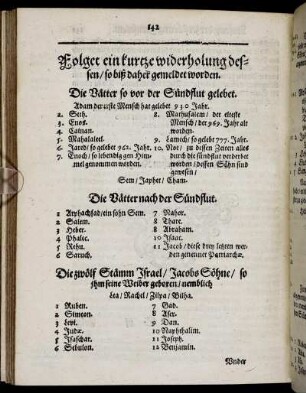 142
Folget ein kurtze widerholung des-
sen/ so biß daher gemeldet worden.
Die Vätter so vor der Sündflut gelebet.
Adam der erste Mensch hat gelebet 930 Jahr.
2. Seth.
3. Enos.
4. Cainan.
5. Mahalaleel.
6. Jared/ so gelebt 962. Jahr.
7. Enoch/ so lebendig gen Him-
mel genommen worden.
8. Mathusalem/ der elteste
Mensch/ der 969. Jahr alt
worden.
9. Lamech/ so gelebt 777. Jahr.
10. Noe/ zu dessen Zeiten alles
durch die sündflut verderbet
worden/ dessen Söhn sind
gewesen/
Sem/ Japhet/ Cham.
Die Vätter nach der Sündflut.
1 Arphachsad/ ein sohn Sem.
2. Salem.
3 Heber.
4 Phalec.
5 Rehu.
6 Saruch.
7 Nahor.
8 Thare.
9 Abraham.
10 Isaac.
11 Jacob/ diese drey letzten wer-
den genennet Patriarchæ.
Die zwölf Stämm Israel/ Jacobs Söhne/ so
ihm seine Weiber geboren/ nemblich
Lea/ Rachel/ Zilpa/ Bilha.
1 Ruben.
2 Simeon.
3 Levi.
4 Judæ.
5 Isaschar.
6 Sebulon.
7 Gad.
8 Aser.
9 Dan.
10 Naphthalim.
11 Joseph.
12 Benjamin.
Weiber